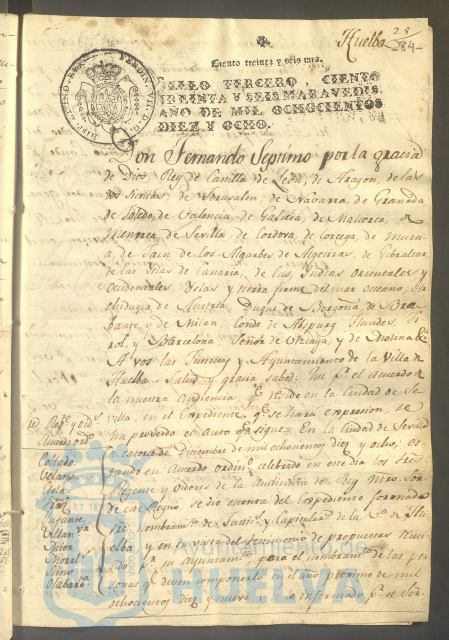 Huelba
28
284
Ciento treinta y seis mrs.
SELLO TERCERO, CIENTO
TREINTA Y SEIS MARAVEDIS,
AÑO DE MIL OCHOCIENTOS
DIEZ Y OCHO.
Don Fernando Septimo por la gracia
de Dios Rey de Castilla de Leon, de Aragon, de las
dos Sicilias de Jerusalen, de Navarra, de Granada
de Toledo, de Valencia, de Galicia, de Mallorca, de
Menorca, de Sevilla, de Cordova, de Corcega, de Murci
a, de Jaen de los Algarbes de Algeciras, de Gibraltar,
de las Yslas de Canaria, de las Yndias orientales, y
Occidentales, Yslas y tierra firme del mar oceano, Ar
chiduque de Austria, Duque de Borgoña de Bra
bante, y de Milan, Conde de Abspurg Flandes, Ti
rol, y Barcelona, Señor de Vizcaya y de Molina &c
A vos las Justicias y Ayuntamiento de la Villa de
Huelba = Salud y gracia sabed: Que pr. el Acuerdo de
la nuestra Audiencia qe. reside en la Ciudad de Se
villa, en el Expediente qe. se hará expresion, se
ha proveido el Auto qe. sigue = En la Ciudad de Sevilla
a catorce de Diciembre de mil ochocientos diez y ocho, es
tando en Acuerdo ordino. celebrado en ese dia los Sres.
Regente y Oidores de la Audiencia del Rey Ntro. Sor.
se dio cuenta del Expediente formado
sre. nombramto. de Justicia y Capitular de la Va. de Hu
elba, y en su vista del testimonio de propuestas
pr. su Ayuntamto. para el nombramto. de las per
sonas qe. deven componerlo en el año proximo de mil
ochocientos diez y nueve y lo informado pr. el Sor.
Collado.
Velasco
Ayuntamiento de
HUELVA